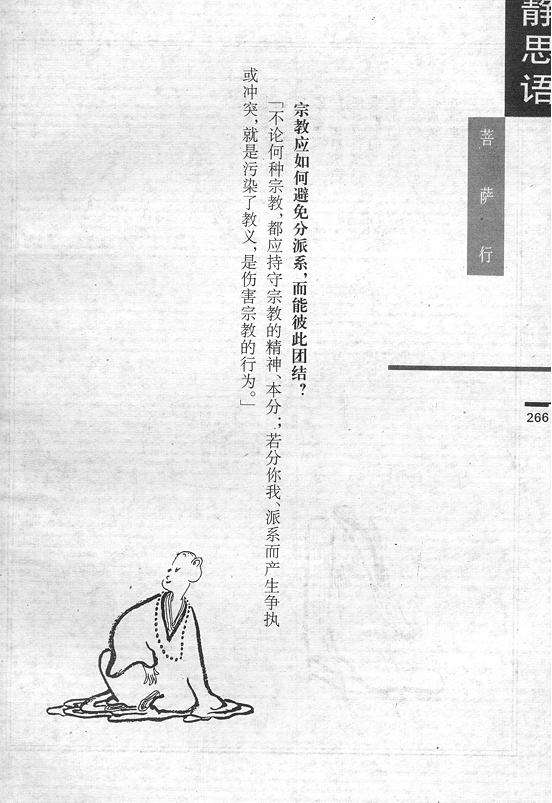 静思语
菩萨行
266
宗教应如何避免分派系，而能彼此团结？
「不论何种宗教，都应持守宗教的精神、本分；若分你我、派系而产生争执
或冲突，就是污染了教义，是伤害宗教的行为。」